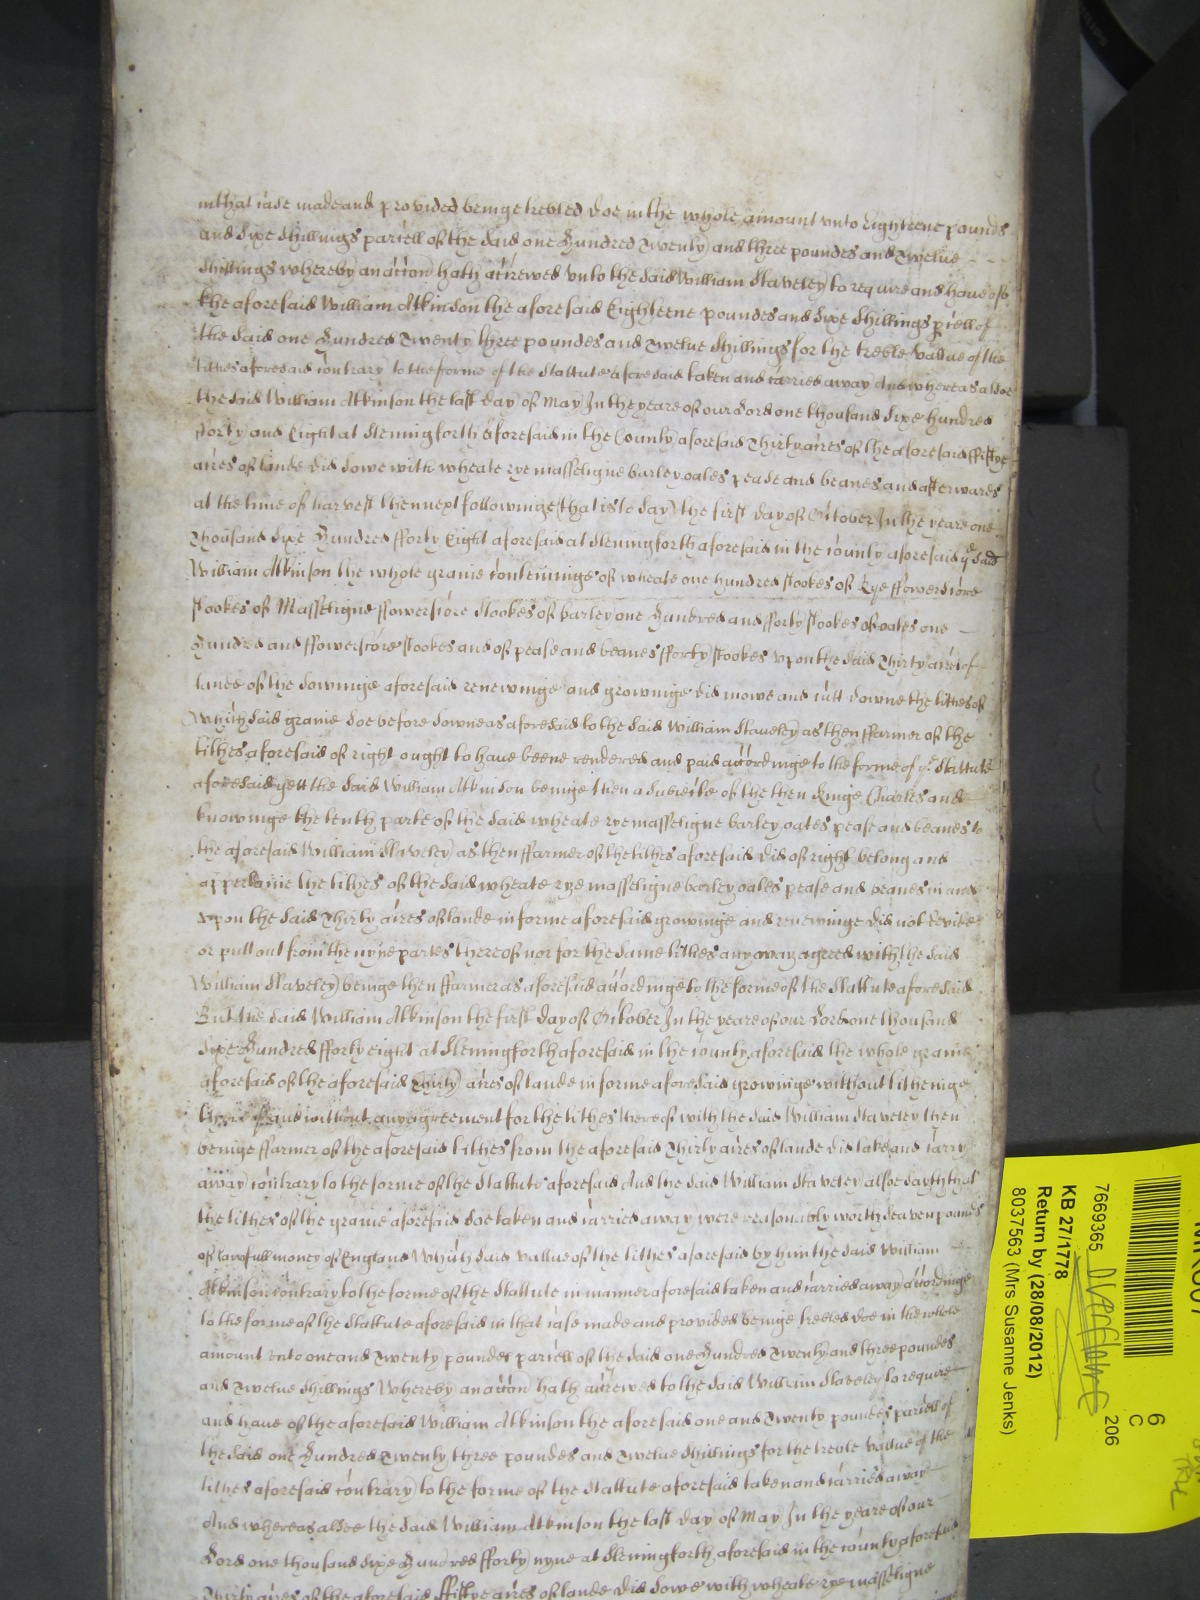 in that case made and provided beinge trebled doe in the whole amount unto Eighteene pounds
and sixe shillings parcell of the said one Hundred Twenty and three poundes and Twelve
shillings whereby an accon hath accrewed unto the said William Staveley to require and have of
the aforesaid William Atkinson the aforesaid Eighteene poundes and sixe shillings pcell of
the said one Hundred Twenty three poundes and Twelve shillings for the treble vallue of the
tithes aforesaid contrary to the forme of the Statute aforesaid taken and carried away And whereas alsoe
the said William Atkinson the last day of May In the yeare of our Lord one thousand sixe hundred
fforty and Eight at Sleningforth aforesaid in the County aforesaid Thirty acres of the aforesaid ffiftye
acres of lande did sowe with wheate rye masseligne barley oates pease and beanes and afterwards
at the time of harvest then next followinge (that is to say) the first day of October In the yeare one
Thousand sixe Hundred fforty Eight aforesaid at Sleningforth aforesaid in the county aforesaid ye said
William Atkinson the whole graine conteininge of wheate one hundred stookes of Rye ffowerscore
stookes of Masseligne ffowerscore stookes of barley one Hundred and fforty stookes of oates one
Hundred and ffowerscore stookes and of pease and beanes fforty stookes upon the said Thirty acres of
lande of the sowinge aforesaid renewinge and growinge did mowe and cutt downe the tithes of
which said graine soe before sowne as aforesaid to the said William Staveley as then ffarmer of the
tithes aforesaid of right ought to have beene rendered and paid accordinge to the forme of ye Statute
aforesaid yett the said William Atkinson beinge then a subiecte of the then Kinge Charles and
knowinge the tenth parte of the said wheate rye masseligne barley oates pease and beanes to
the aforesaid William Staveley as then ffarmer of the tithes aforesaid did of right belong and
appertaine the tithes of the said wheate rye masseligne barley oates pease and beanes in and
upon the said Thirty acres of lande in forme aforesaid growinge and renewinge did not devide
or pull out from the nyne partes thereof nor for the same tithes any way agreed with the said
William Staveley beinge then ffarmer as aforesaid accordinge to the forme of the Statute aforesaid
But the said William Atkinson the first day of October In the yeare of our Lord one thousand
sixe Hundred fforty eight at Sleningforth aforesaid in the county aforesaid the whole graine
aforesaid of the aforesaid Thirty acres of lande in forme aforesaid growinge without titheinge
thereof and without any agreement for the tithes thereof with the said William Staveley then
beinge ffarmer of the aforesaid tithes from the aforesaid Thirty acres of lande did take and carry
away contrary to the forme of the Statute aforesaid And the said William Staveley alsoe sayth that
the tithes of the graine aforesaid soe taken and carried away were reasonably worth seaven pounds
of lawfull money of England which said vallue of the tithes aforesaid by him the said William
Atkinson contrary to the forme of the Statute in manner aforesaid taken and carried away accordinge
to the forme of the Statute aforesaid in that case made and provided beinge trebled doe in the whole
amount unto one and Twenty poundes parcell of the said one Hundred Twenty and three poundes
and Twelve shillings whereby an accon hath accrewed to the said William Staveley to require
and have of the aforesaid William Atkinson the aforesaid one and Twenty poundes parcell of
the said one Hundred Twenty three poundes and Twelve shillings for the treble vallue of the
tithes aforesaid contrary to the forme of the Statute aforesaid taken and carried away
And whereas alsoe the said William Atkinson the last day of May In the yeare of our
Lord one thousand sixe Hundred fforty nyne at Sleningforth aforesaid in the county aforesaid
Thirty acres of the aforesaid ffiftye acres of lande did sowe with wheate rye masseligne
6
C
206
7669365
KB 27/1778
Return by (28/08/2012)
8037563 (Mrs Susanne Jenks)